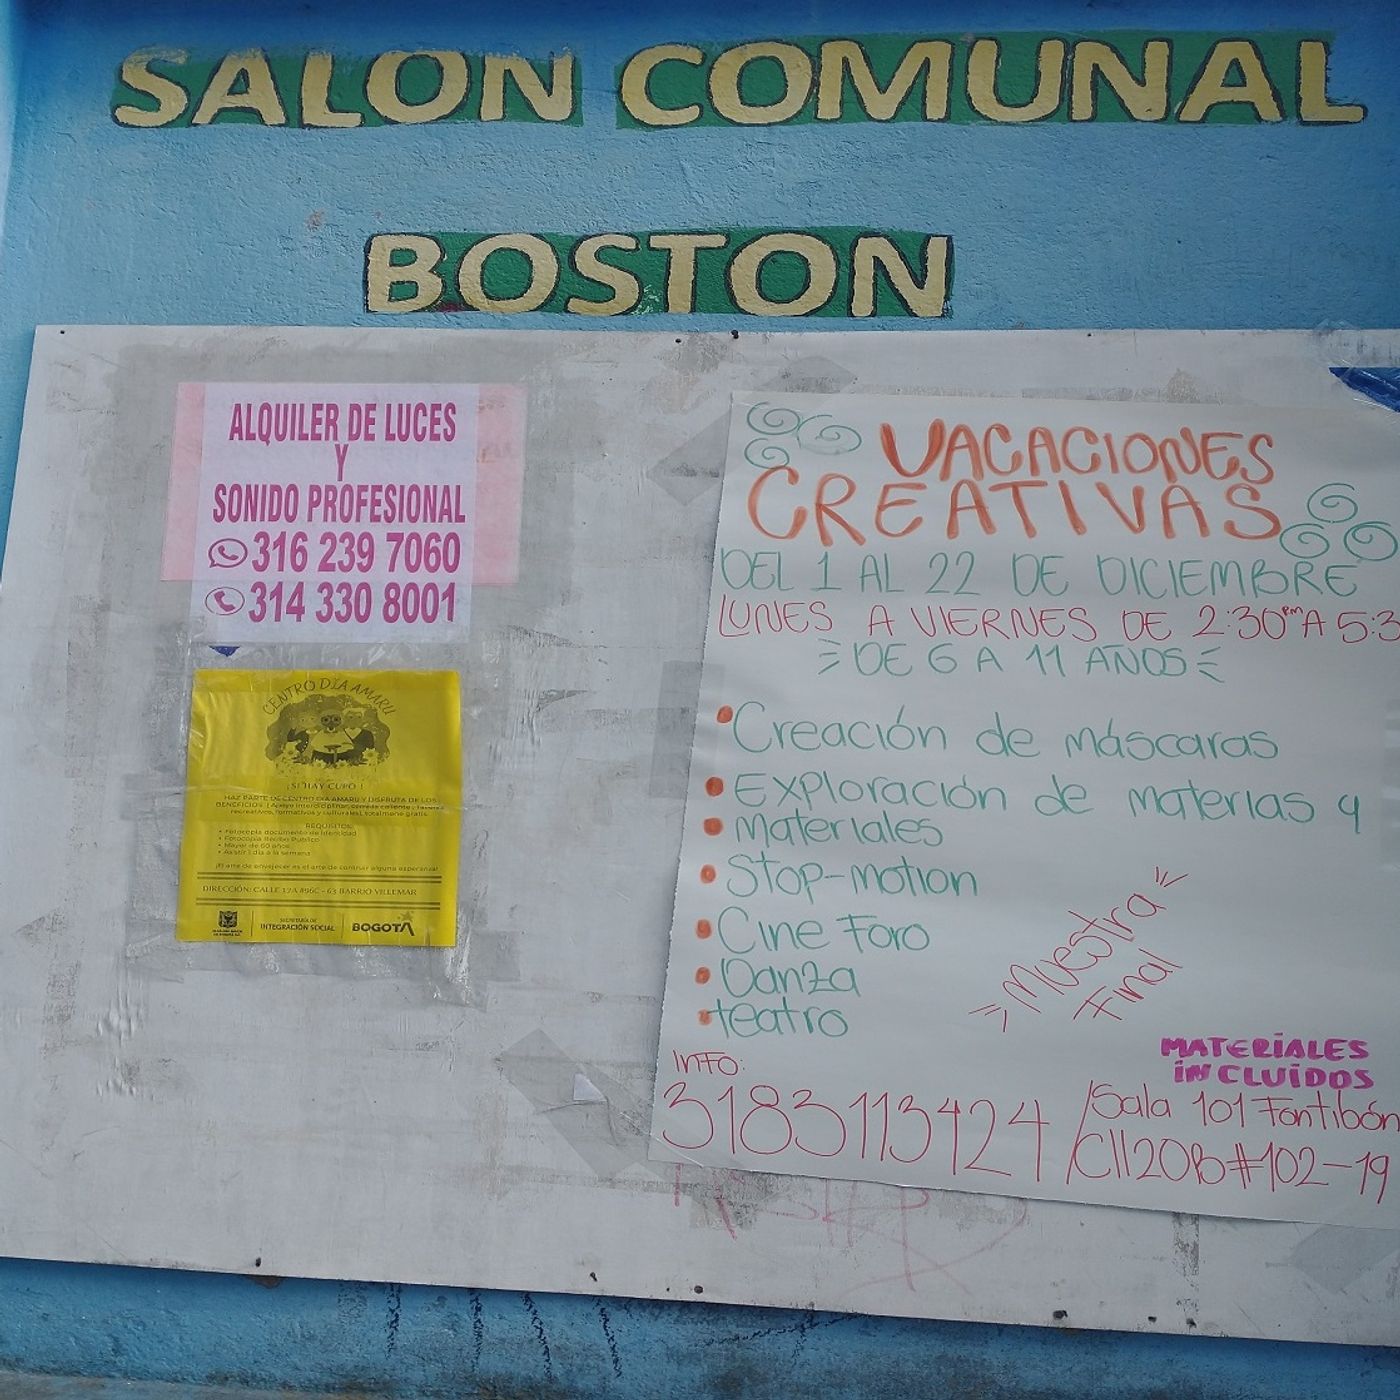 SALON COMUNAL
BOSTON
ALQUILER DE LUCES
Y
SONIDO PROFESIONAL
316 239 7060
314 330 8001
CENTRO DÍA AMARU
¡SI HAY CUPO!
HAZ PARTE DE CENTRO DIA AMARU Y DISFRUTA DE LOS
REQUISITOS:
Fotocopia documento de identidad
Fotocopia Recibo Publico
Mayor de 60 años
Asistir 1 día a la semana
¡El arte de envejecer es el arte de conservar alguna esperanza!
DIRECCIÓN: CALLE 17A #96C - 63 BARRIO VILLEMAR
SECRETARÍA DE
INTEGRACIÓN SOCIAL
BOGOTÁ
VACACIONES
CREATIVAS
DEL 1 AL 22 DE DICIEMBRE
LUNES A VIERNES DE 2:30PM A 5:3
DE 6 A 11 AÑOS
• Creación de máscaras
• Exploración de materias y
• materiales
• Stop-motion
• Cine Foro
• Danza
• teatro
Muestra
Final
MATERIALES
INCLUIDOS
INFO:
3183113424 / Sala 101 Fontibón
Cll20B#102-19